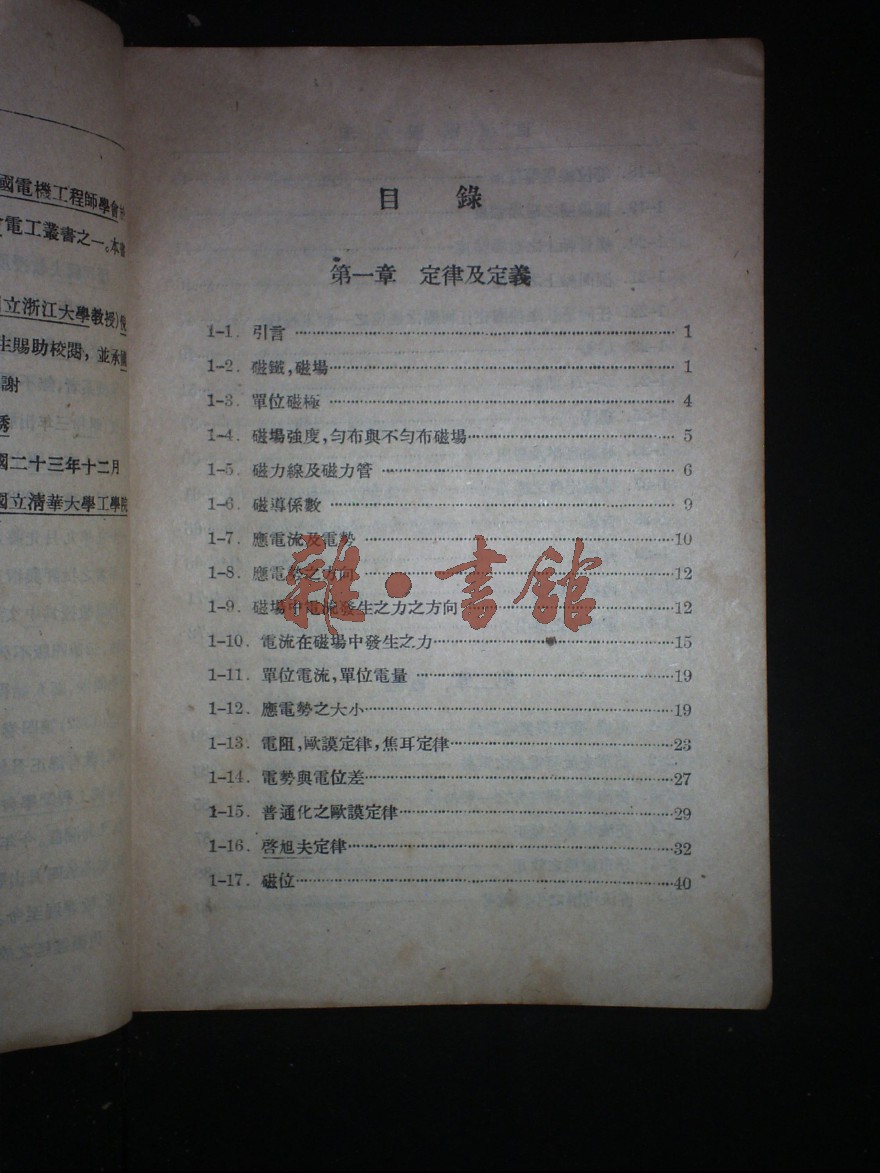 國電機工程師學會
電工叢書之一。本
國立浙江大學教授
生賜助校閱，並承
謝
國二十三年十二月
國立清華大學工學院
目錄
第一章 定律及定義
1-1. 引言 1
1-2. 磁鐵，磁場 1
1-3. 單位磁極 4
1-4. 磁場強度，勻布與不勻布磁場 5
1-5. 磁力線及磁力管 6
1-6. 磁導係數 9
1-7. 應電流及電勢 10
1-8. 應電勢之方向 12
1-9. 磁場中電流發生之力之方向 12
1-10. 電流在磁場中發生之力 15
1-11. 單位電流，單位電量 19
1-12. 應電勢之大小 19
1-13. 電阻，歐謨定律，焦耳定律 23
1-14. 電勢與電位差 27
1-15. 普通化之歐謨定律 29
1-16. 啓旭夫定律 32
1-17. 磁位 40
雜·書館